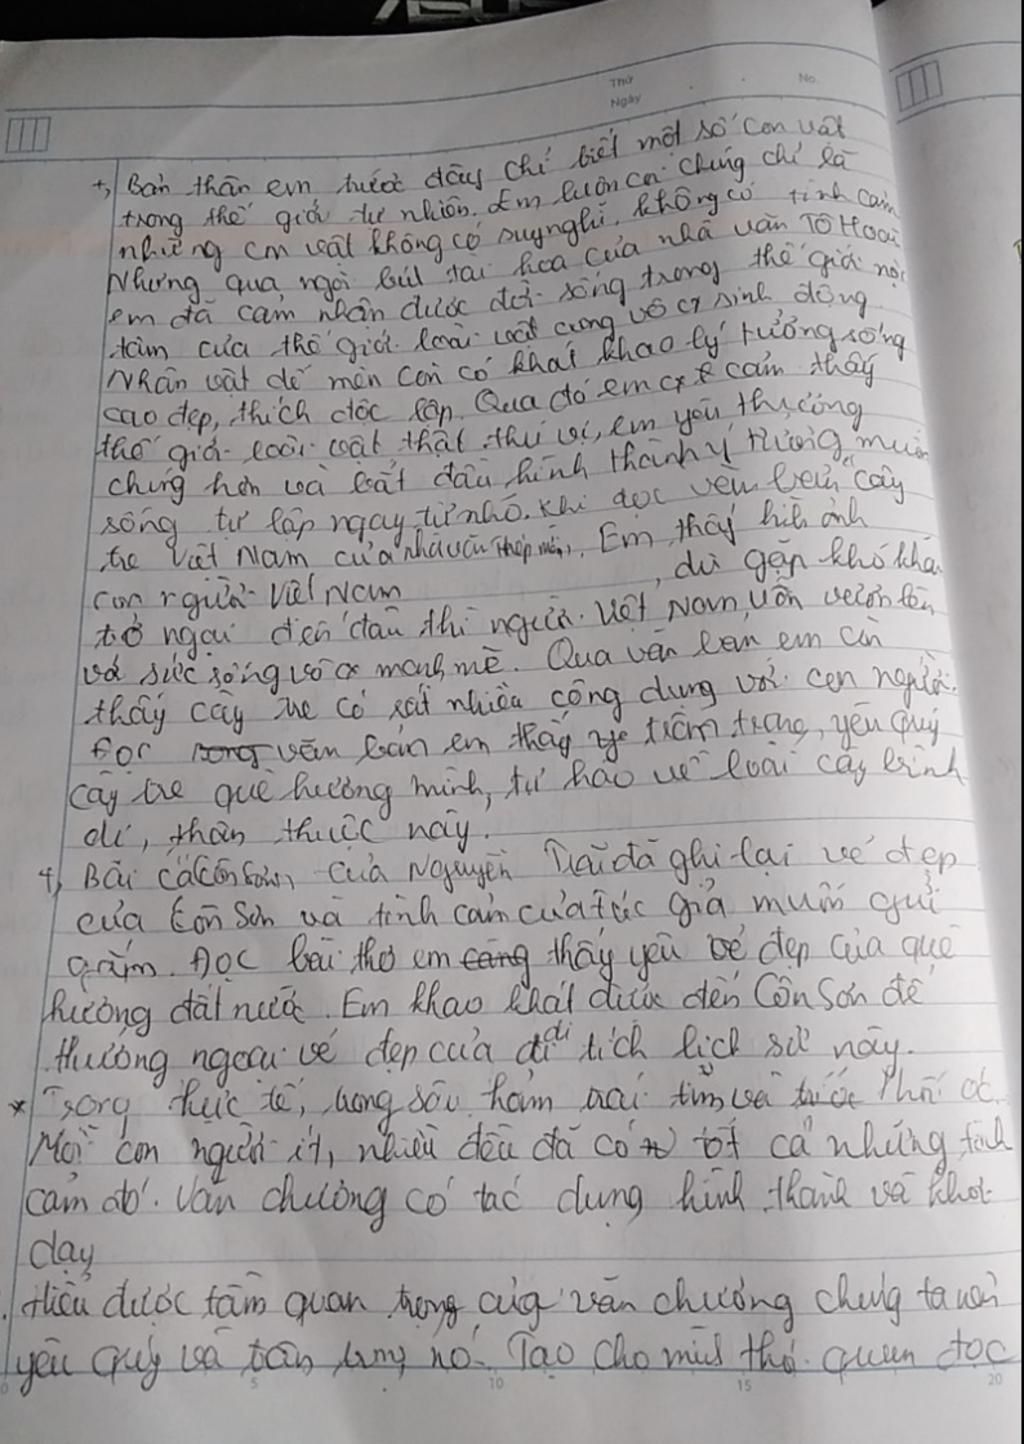 ASUS
Thứ
No.
Ngày
+, Bản thân em trước đây chỉ biết một số con vật
trong thế giới tự nhiên. Em luôn coi chúng chỉ là
những con vật không có suy nghĩ, không có tình cảm
Nhưng qua ngòi bút tài hoa của nhà văn Tô Hoài
em đã cảm nhận được đời sống trong thế giới nội
tâm của thế giới loài vật cũng vô cx sinh động
Nhân vật dế mèn còn có khát khao lý tưởng sống
cao đẹp, thích độc lập. Qua đó em cx cảm thấy
thế giới loài vật thật thú vị, em yêu thương
chúng hơn và bắt đầu hình thành ý tưởng muốn
sống tự lập ngay từ nhỏ. Khi đọc văn bản "cây
tre Việt Nam của nhà văn Thép mới, Em thấy hình ảnh
con người Việt Nam , dù gặp khó khăn
trở ngại đến đâu thì người Việt Nam vẫn vươn lên
và sức sống vô cx mạnh mẽ. Qua văn bản em còn
thấy cây tre có rất nhiều công dụng với con người.
Đọc văn bản em thấy trân trọng, yêu quý
cây tre quê hương mình, tự hào về loài cây bình
dị, thân thuộc này.
+, Bài ca Côn Sơn của Nguyễn Trãi đã ghi lại vẻ đẹp
của Côn Sơn và tình cảm của tác giả muốn gửi
gắm. Đọc bài thơ em càng thấy yêu vẻ đẹp của quê
hương đất nước. Em khao khát được đến Côn Sơn để
thưởng ngoại vẻ đẹp của di tích lịch sử này.
* Trong thực tế, trong sâu thẳm trái tim và khối óc
Mỗi con người ít, nhiều đều đã có tất cả những tình
cảm đó. Văn chương có tác dụng hình thành và khơi
dạy
. Hiểu được tầm quan trọng của văn chương chúng ta
yêu quý và trân trọng nó. Tạo cho mình thói quen đọc
0 5 10 15 20